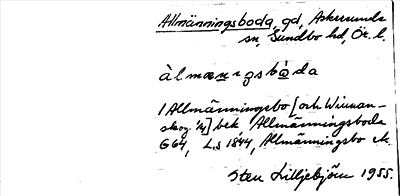 Allmänningsboda, gd, Askersunds
sn, Sundbo hd, Ör. l.
àlmænıŋsbǒda
/ Allmänningsbo [och Winnan-
skog ¼] bek Allmänningsboda
G 64, L.s 1844, Allmänningsbo
Sten Lilljebjörn 1955.